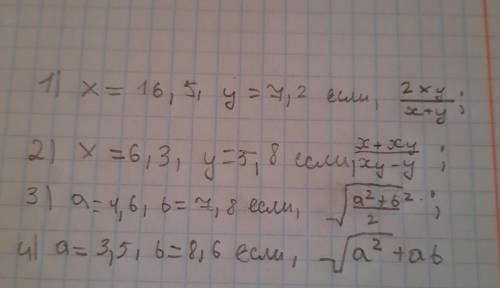 1) x = 16,5, y = 7,2 если, 2xy/x+y;
2) x = 6,3, y = 5,8 если, x+xy/xy-y;
3) a = 4,6, b = 7,8 если, √a²+b²/2;
4) a = 3,5, b = 8,6 если, √a²+ab